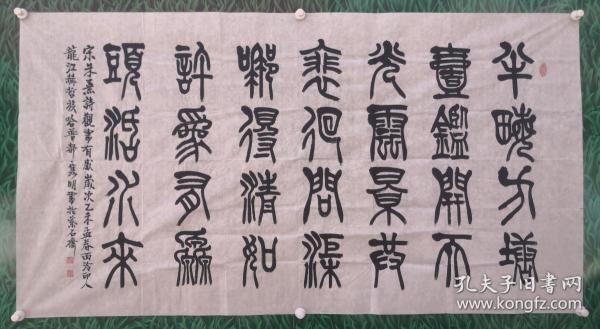 半畝方塘
壹鑑開天
光雲景共
裵徊問渠
那得清如
許爲有厵
頭活水來
宋朱熹詩觀書有感歲次乙未孟春西泠印人
龍江赫哲族哈普都雋明書於紫石齋
孔夫子旧书网
www.kongfz.com